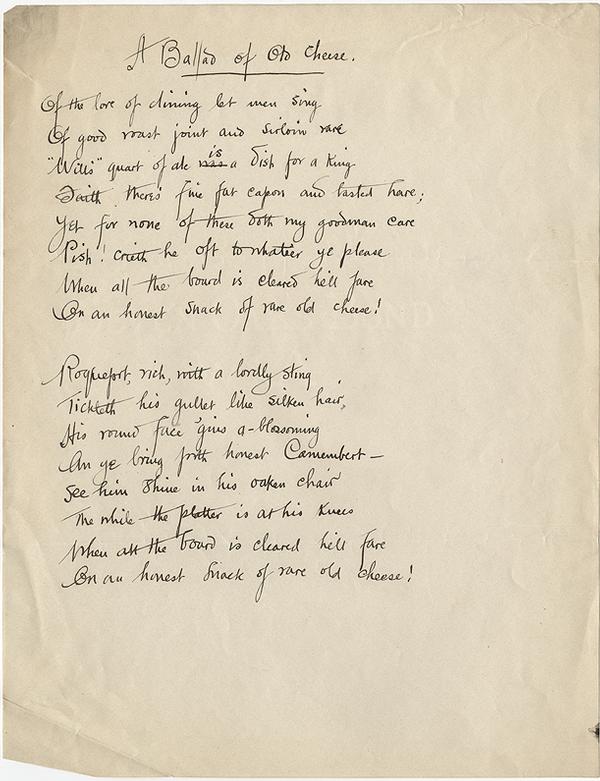 A Ballad of Old Cheese.
Of the love of dining let men sing
Of good roast joint and sirloin rare
"Wills" quart of ale is a dish for a King
Faith there's fine fat capon and tasted hare;
Yet for none of these doth my goodman care
Pish! crieth he oft to whatever ye please
When all the board is cleared he'll fare
On an honest snack of rare old cheese!
Roquefort, rich, with a lordly sting
Tickleth his gullet like silken hair,
His round face gins a-blossoming
An ye bring forth honest Camembert—
See him shine in his oaken chair
The while the platter is at his knees
When all the board is cleared he'll fare
On an honest snack of rare old cheese!